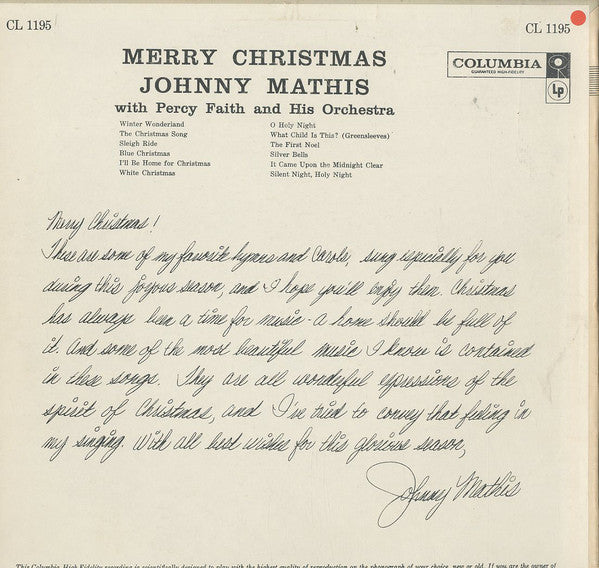 CL 1195
CL 1195
MERRY CHRISTMAS
JOHNNY MATHIS
with Percy Faith and His Orchestra
COLUMBIA
GUARANTEED HIGH-FIDELITY
Lp
Winter Wonderland
The Christmas Song
Sleigh Ride
Blue Christmas
I'll Be Home for Christmas
White Christmas
O Holy Night
What Child Is This? (Greensleeves)
The First Noel
Silver Bells
It Came Upon the Midnight Clear
Silent Night, Holy Night
Merry Christmas!
These are some of my favorite hymns and Carols, sung especially for you
during this joyous season, and I hope you'll enjoy them. Christmas
has always been a time for music - a home should be full of
it. And some of the most beautiful music I know is contained
in these songs. They are all wonderful expressions of the
spirit of Christmas, and I've tried to convey that feeling in
my singing. With all best wishes for this glorious season,
Johnny Mathis
This Columbia High Fidelity recording is scientifically designed to play with the highest quality of reproduction on the phonograph of your choice, new or old. If you are the owner of